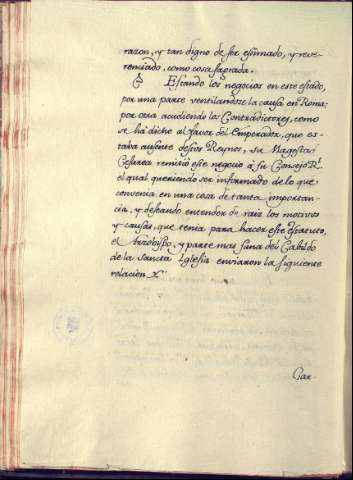 razon, y tan digno de ser estimado, y reve-
renciado, como cosa sagrada.
Estando los negocios en este estado,
por una parte ventilandose la causa en Roma;
por otra acudiendo los Contradictores, como
se há dicho al favor del Emperador, que es-
taba ausente destos Reynos, su Magestad
Cesarea remitió este negocio á su Consejo Rl
el qual queriendo ser informado de lo que
convenia en una cosa de tanta importan-
cia, y deseando entender de raiz los motivos
y causas, que tenia para hacer este estatuto,
el Arzobispo, y parte mas sana del Cabildo
de la Sancta Iglesia enviaron la siguiente
relacion
Car-